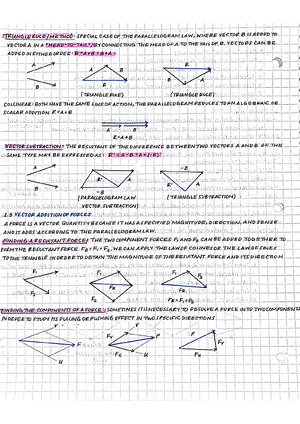 TRIANGLE RULE/METHOD: SPECIAL CASE OF THE PARALLELOGRAM LAW, WHERE VECTOR B IS ADDED TO
VECTOR A IN A "HEAD-TO-TAIL", BY CONNECTING THE HEAD OF A TO THE TAIL OF B. VECTORS CAN BE
ADDED IN EITHER ORDER: R=A+B=B+A
A
B
R
A
B
R
B
A
(TRIANGLE RULE)
(TRIANGLE RULE)
COLLINEAR: BOTH HAVE THE SAME LINE OF ACTION, THE PARALLELOGRAM REDUCES TO AN ALGEBRAIC OR
SCALAR ADDITION R=A+B
R
A
B
VECTOR SUBTRACTION: THE RESULTANT OF THE DIFFERENCE BETWEEN TWO VECTORS A AND B OF THE
SAME TYPE MAY BE EXPRESSED AS: R'=A-B=A+(-B)
A
B
-B
R'
A
-B
R'
A
(PARALLELOGRAM LAW
VECTOR SUBTRACTION)
(TRIANGLE SUBTRACTION)
2.3 VECTOR ADDITION OF FORCES
A FORCE IS A VECTOR QUANTITY BECAUSE IT HAS A SPECIFIED MAGNITUDE, DIRECTION, AND SENSE
AND IT ADDS ACCORDING TO THE PARALLELOGRAM LAW.
FINDING A RESULTANT FORCE: THE TWO COMPONENT FORCES F₁ AND F₂ CAN BE ADDED TOGETHER TO
FORM THE RESULTANT FORCE FR = F₁+F₂. WE CAN APPLY THE LAW OF COSINES OR THE LAW OF SINES
TO THE TRIANGLE IN ORDER TO OBTAIN THE MAGNITUDE OF THE RESULTANT FORCE AND ITS DIRECTION
F₁
F₂
F₁
FR
F₂
F₁
F₂
FR
FR=F₁+F₂
FINDING THE COMPONENTS OF A FORCE: SOMETIMES IT IS NECESSARY TO RESOLVE A FORCE INTO TWO COMPONENTS
IN ORDER TO STUDY ITS PULLING OR PUSHING EFFECT IN TWO SPECIFIC DIRECTIONS
V
F
U
V
F
U
F